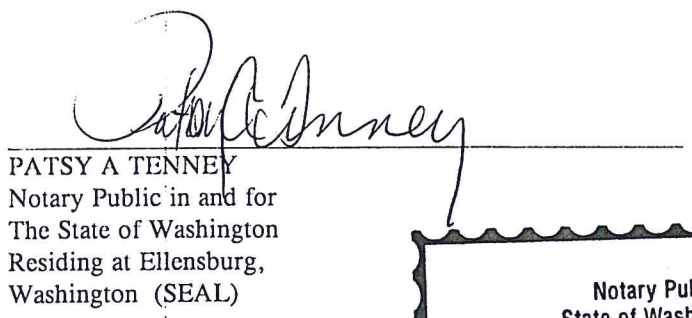 Patsy A Tenney
PATSY A TENNEY
Notary Public in and for
The State of Washington
Residing at Ellensburg,
Washington (SEAL)
Notary Pul
State of Wash